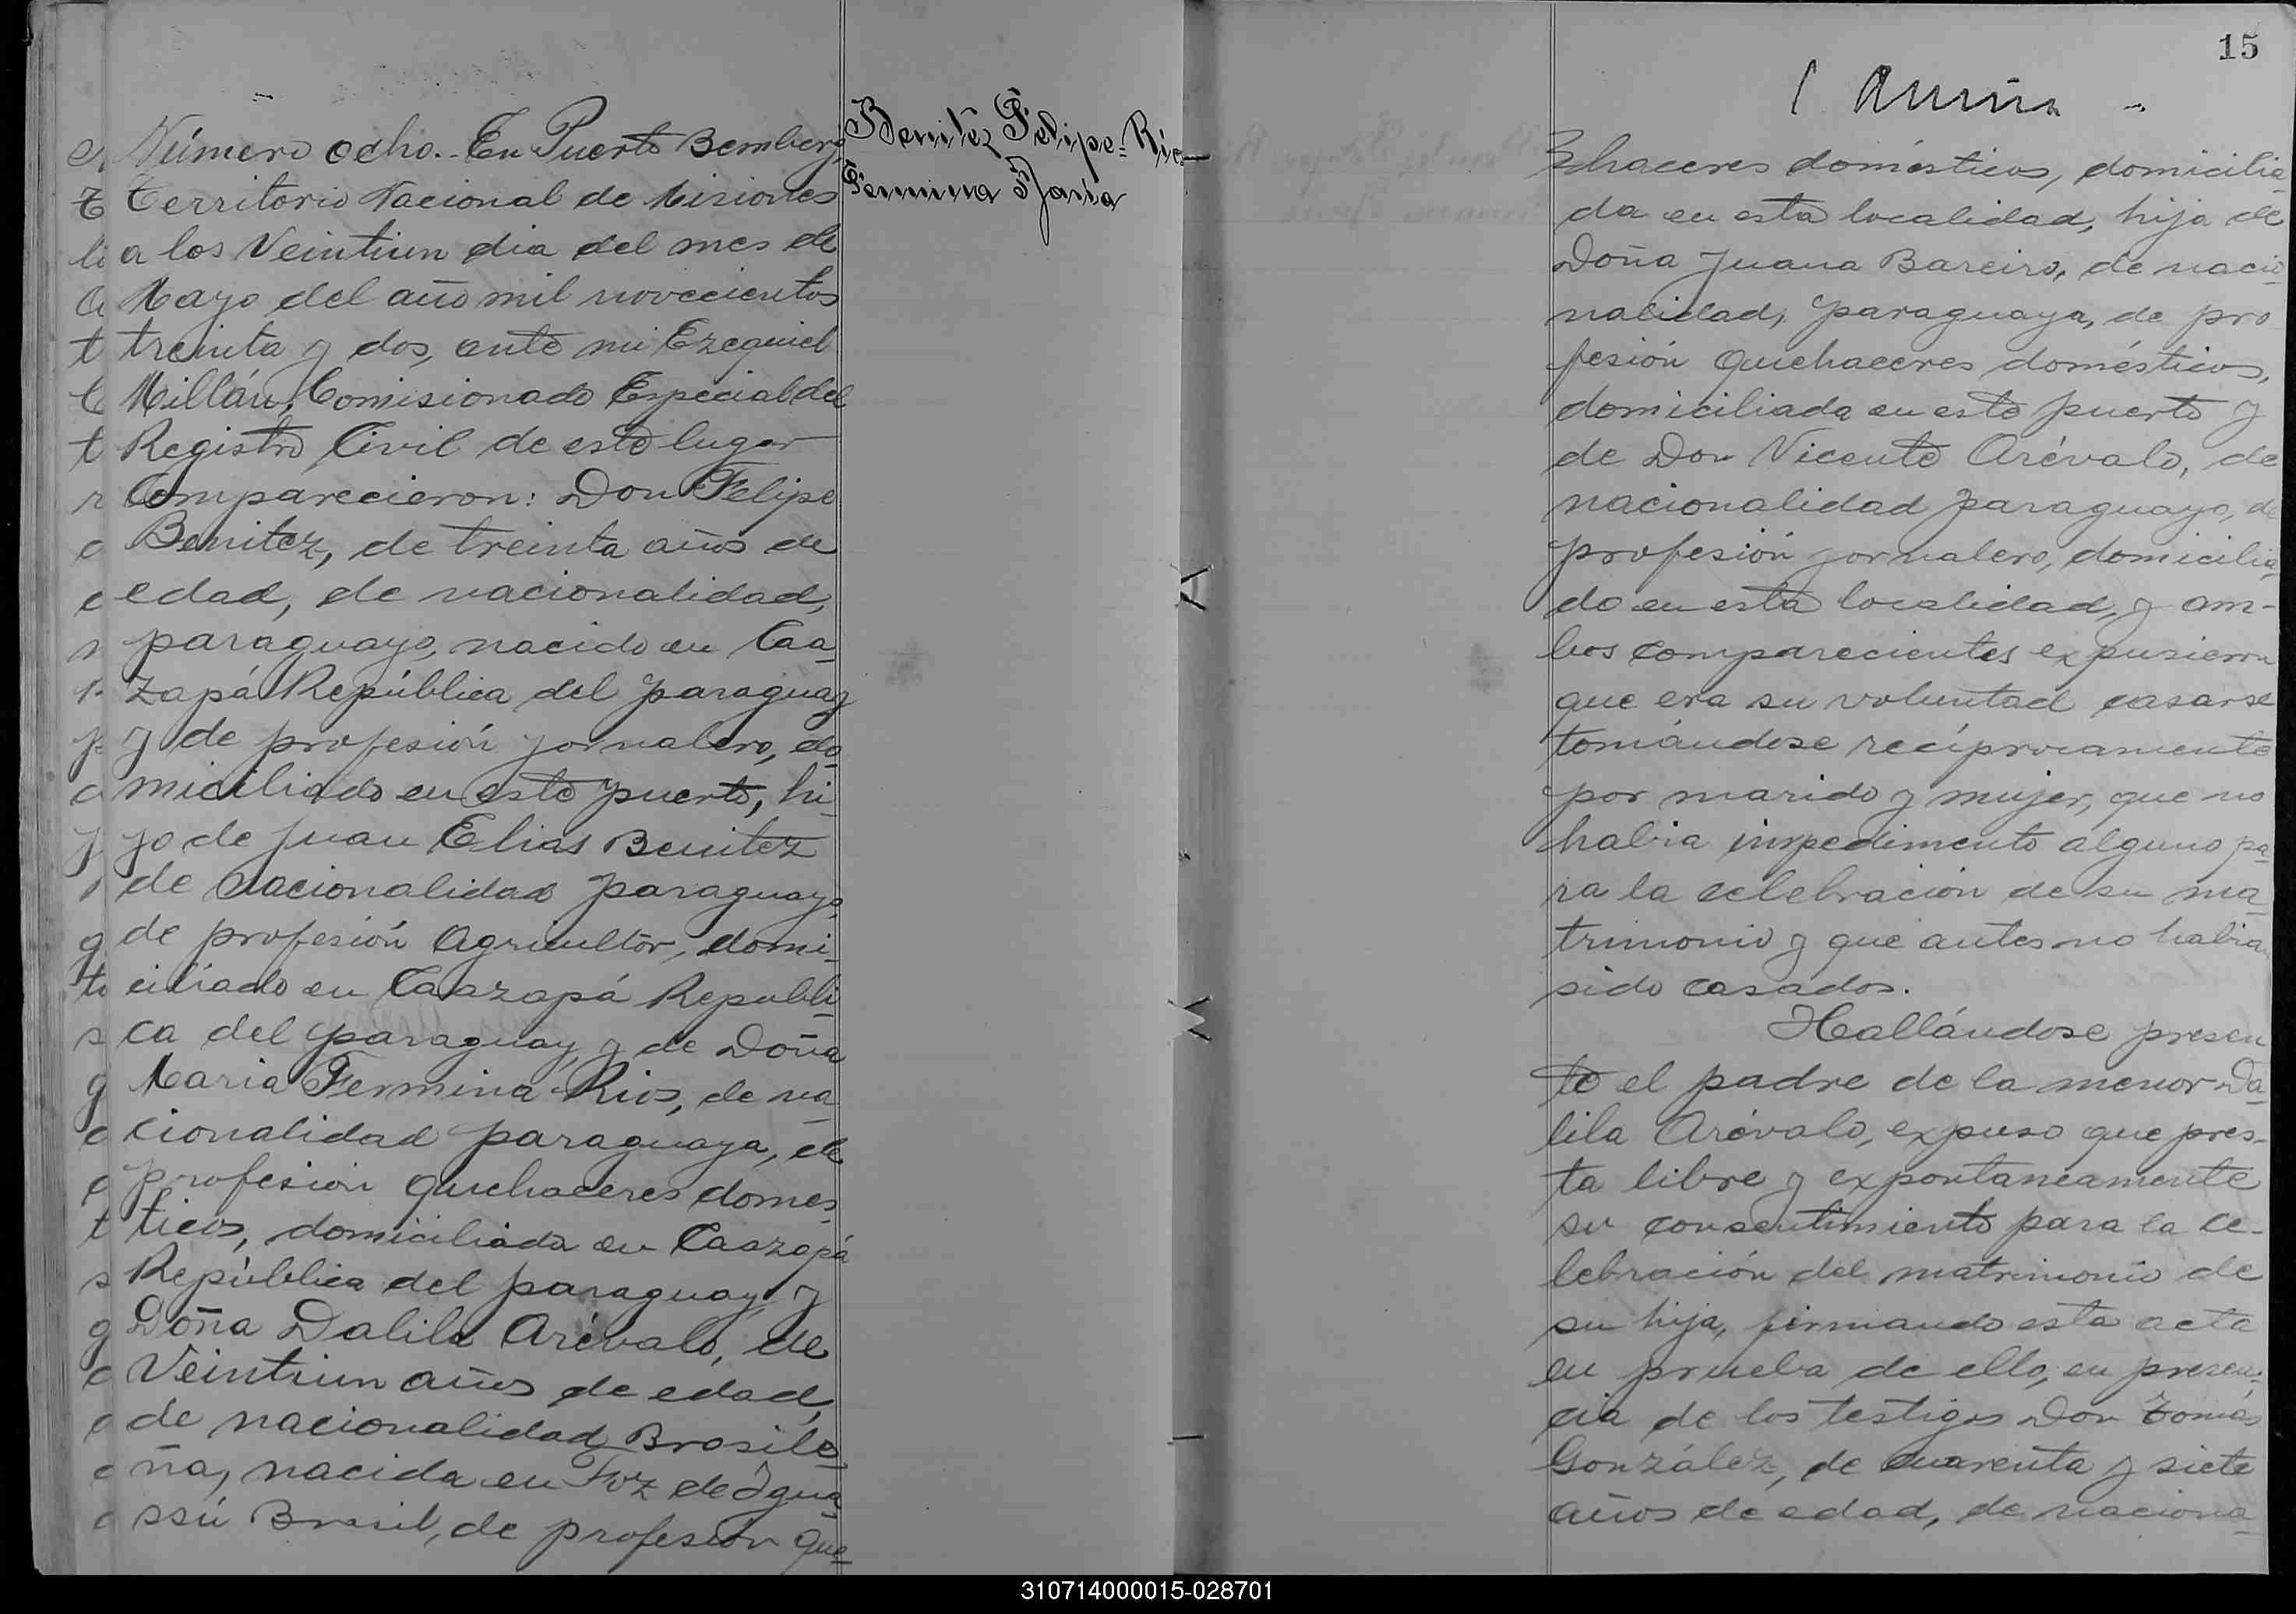 Número ocho. En Puerto Bemberg,
Territorio Nacional de Misiones
a los Veintiun dia del mes de
Mayo del año mil novecientos
treinta y dos, ante mi Ezequiel
Millán, Comisionado Especial del
Registro Civil de este lugar
Comparecieron: Don Felipe
Benitez, de treinta años de
edad, de nacionalidad,
paraguayo, nacido en Caa-
zapá República del paraguay
y de profesión jornalero, do-
miciliado en este puerto, hi-
jo de Juan Elias Benitez
de nacionalidad paraguayo,
de profesión Agricultor, domi-
ciliado en Caazapá Republi-
ca del paraguay, y de Doña
Maria Fermina Rios, de na-
cionalidad paraguaya, de
profesion quehaceres domes-
ticos, domiciliada en Caazapá
República del paraguay, y
Doña Dalila Arévalo, de
Veintiun años de edad,
de nacionalidad Brasile-
ña, nacida en Foz de Igua-
ssú Brasil, de profesión que-
Benitez Felipe=
Fermina
15
haceres domésticos, domicilia-
da en esta localidad, hija de
Doña Juana Bareiro, de nacio-
nalidad, paraguaya, de pro
fesión quehaceres domésticos,
domiciliada en este puerto y
de Don Vicente Arévalo, de
nacionalidad paraguayo, de
profesión jornalero, domicilia-
do en esta localidad, y am-
bos comparecientes expusieron
que era su voluntad casarse
tomándose recíprocamente
por marido y mujer, que no
habia impedimento alguno pa-
ra la celebración de su ma-
trimonio y que antes no habia
sido casados.
Hallándose presen
te el padre de la menor Da-
lila Arévalo, expuso que pres-
ta libre y expontaneamente
su consentimiento para la ce-
lebración del matrimonio de
su hija, firmando esta acta
en prueba de ello, en presen-
cia de los testigos Don Tomás
González, de cuarenta y siete
años de edad, de naciona-
310714000015-028701